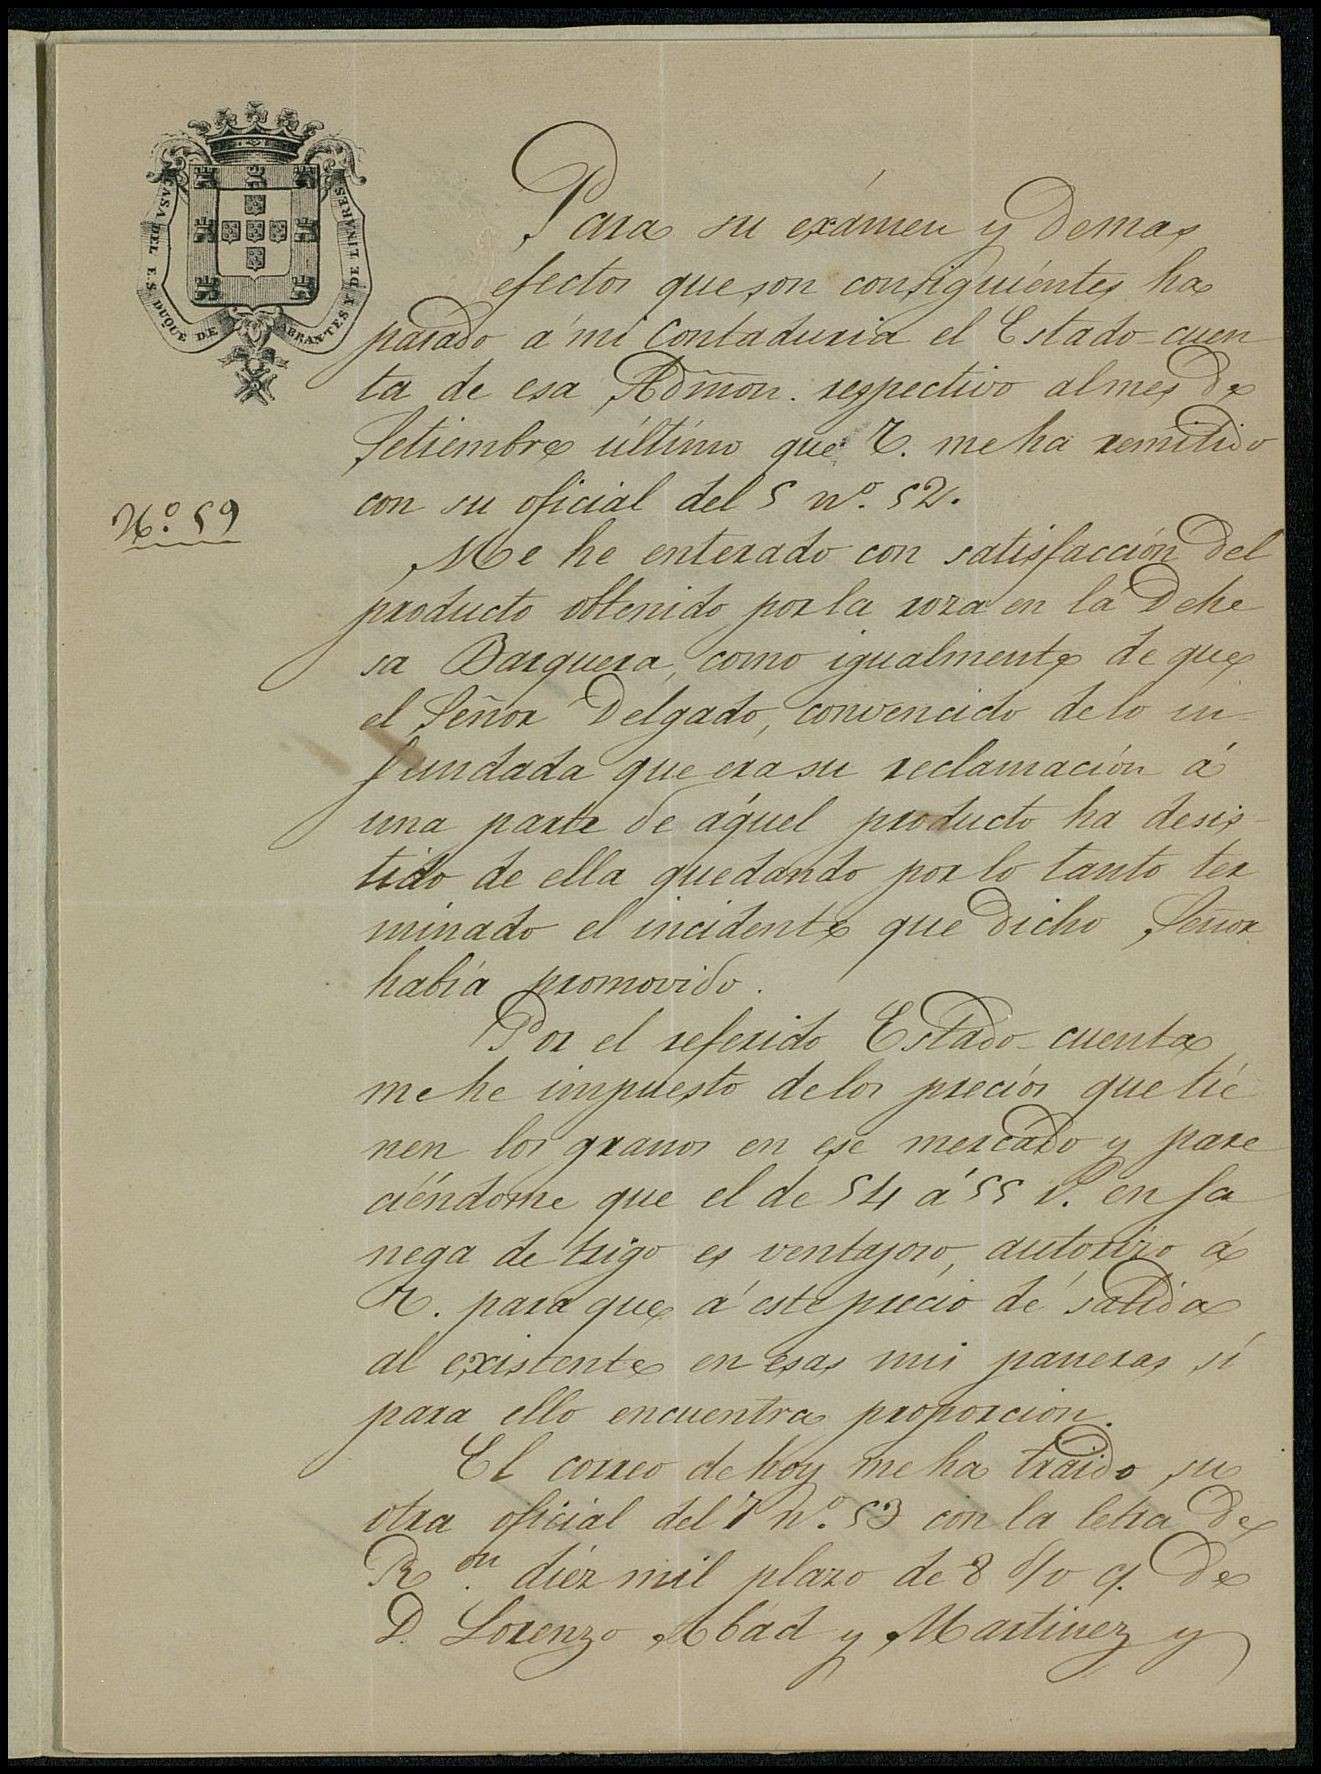 CASA DEL E.S. DUQUE DE ABRANTES Y DE LINARES
Para su exámen y demas
efectos que son consiguiéntes ha
pasado á mi Contaduria el Estado-cuen
ta de esa Admon. respectivo al mes de
Setiembre último que V. me ha remitido
con su oficial del 5 nº. 52.
Nº. 59
Me he enterado con satisfacción del
producto obtenido por la roza en la Dehe
sa Barquera, como igualmente de que
el Señor Delgado, convencido de lo in-
fundada que era su reclamación á
una parte de aquel producto ha desis-
tido de ella quedando por lo tanto ter
minado el incidente que dicho Señor
había promovido.
Por el referido Estado-cuenta
me he impuesto de los precios que tie
nen los granos en ese mercado y pare
ciéndome que el de 54 á 55 r. en fa
nega de trigo es ventajoso, autorizo á
V. para que á este precio dé salida
al existente en esas mis paneras si
para ello encuentra proporcion.
El correo de hoy me ha traido su
otra oficial del 7 nº. 53 con la letra de
R.on diez mil plazo de 8 d/v c/. de
D. Lorenzo Abad y Martinez y